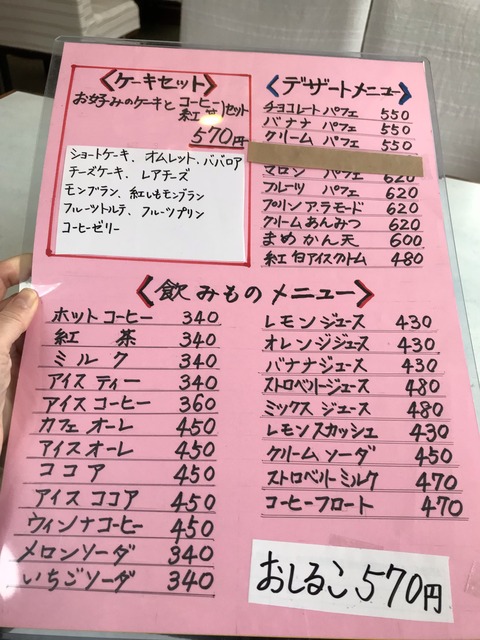 ケーキセット
お好みのケーキと コーヒー 紅せ セット
570円
ショートケーキ、オムレット、ババロア
チーズケーキ、レアチーズ
モンブラン、紅いもモンブラン
フルーツトルテ、フルーツプリン
コーヒーゼリー
デザートメニュー
チョコレート パフェ 550
バナナ パフェ 550
クリーム パフェ 550
マロン パフェ 620
フルーツ パフェ 620
プリンアラモード 620
クリームあんみつ 620
まめかん天 600
紅白アイスクリーム 480
飲みものメニュー
ホットコーヒー 340
紅茶 340
ミルク 340
アイスティー 340
アイスコーヒー 360
カフェオーレ 450
アイスオーレ 450
ココア 450
アイスココア 450
ウィンナコーヒー 450
メロンソーダ 340
いちごソーダ 340
レモンジュース 430
オレンジジュース 430
バナナジュース 430
ストロベリージュース 480
ミックスジュース 480
レモンスカッシュ 430
クリームソーダ 450
ストロベリーミルク 470
コーヒーフロート 470
おしるこ 570円